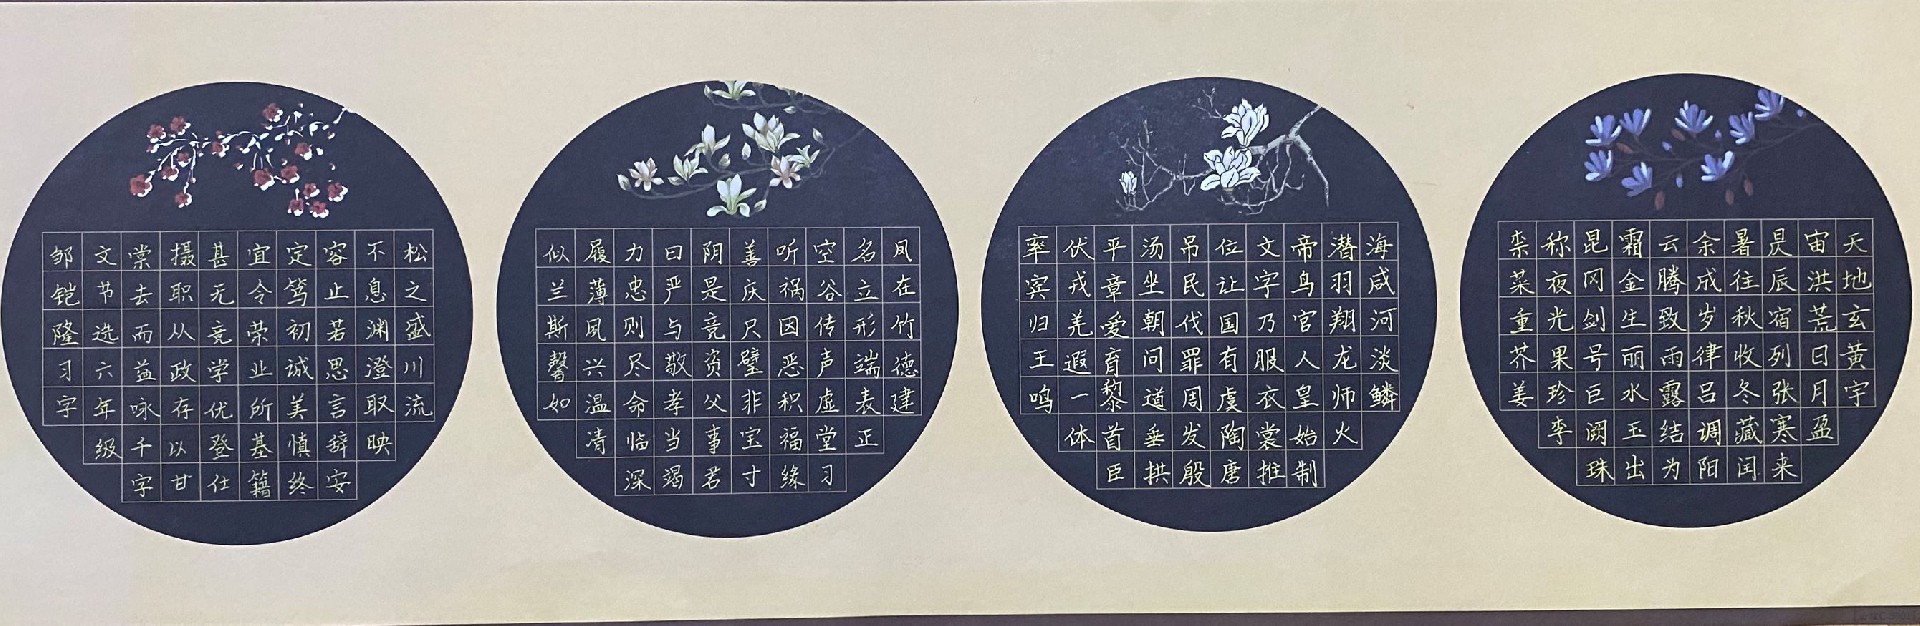 天地玄黄宇
宙洪荒日月盈
昃辰宿列张寒来
暑往秋收冬藏闰
余成岁律吕调阳
云腾致雨露结为
霜金生丽水玉出
昆冈剑号巨阙珠
称夜光果珍李
柰菜重芥姜
海咸河淡鳞
潜羽翔龙师火
帝鸟官人皇始制
文字乃服衣裳推
位让国有虞陶唐
吊民伐罪周发殷
汤坐朝问道垂拱
平章爱育黎首臣
伏戎羌遐一体
率宾归王鸣
凤在竹德建
名立形端表正
空谷传声虚堂习
听祸因恶积福缘
善庆尺璧非宝寸
阴是竞资父事若
曰严与敬孝当竭
力忠则尽命临深
履薄夙兴温凊
似兰斯馨如
松之盛川流
不息渊澄取映
容止若思言辞安
定笃初诚美慎终
宜令荣业所基籍
甚无竟学优登仕
摄职从政存以甘
棠去而益咏千字
文节选六年级
邹铠隆习字